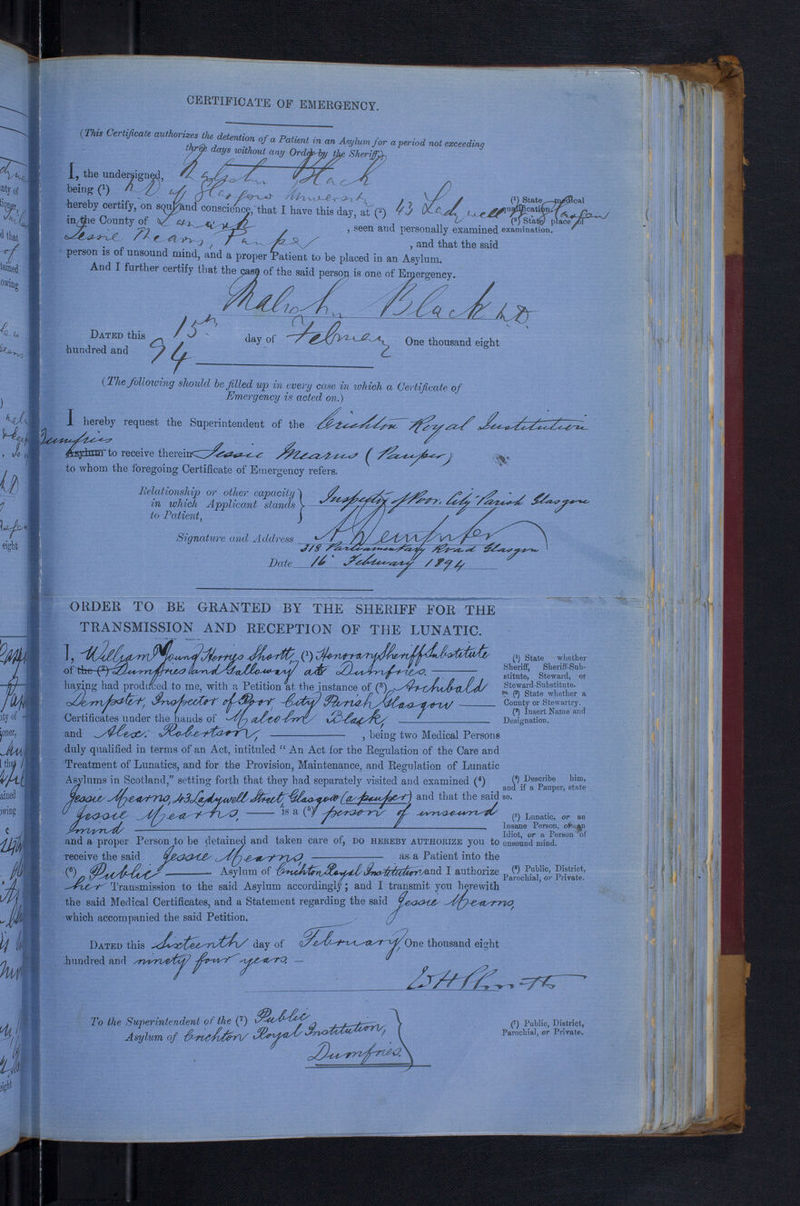 CERTIFICATE OF EMERGENCY.
(This Certificate authorizes the detention of a Patient in an Asylum for a period not exceeding
three days without any Order by the Sheriff.)
I, the undersigned, Malcolm Black
being (¹) M.D. of Glasgow University
hereby certify, on soul and conscience, that I have this day, at (²) 43 Ladywell St Glasgow
in the County of Lanark, seen and personally examined
Jessie Mearns, Pauper, and that the said
person is of unsound mind, and a proper Patient to be placed in an Asylum.
And I further certify that the case of the said person is one of Emergency.
(¹) State medical
qualification.
(²) State place of
examination.
Malcolm Black M.D.
DATED this 15th day of February One thousand eight
hundred and 94
(The following should be filled up in every case in which a Certificate of
Emergency is acted on.)
I hereby request the Superintendent of the Crichton Royal Institution
Dumfries
Asylum to receive therein Jessie Mearns (Pauper)
to whom the foregoing Certificate of Emergency refers.
Relationship or other capacity
in which Applicant stands
to Patient,
Inspector of Poor. City Parish Glasgow
Signature and Address A Dempster
318 Parliamentary Road Glasgow
Date 16 February 1894
ORDER TO BE GRANTED BY THE SHERIFF FOR THE
TRANSMISSION AND RECEPTION OF THE LUNATIC.
I, William Young Herries Shortt, (¹) Honorary Sheriff Substitute
of the (²) Dumfries and Galloway at Dumfries
having had produced to me, with a Petition at the instance of (³) Archibald
Dempster, Inspector of Poor City Parish Glasgow
Certificates under the hands of Malcolm Black,
and Alex. Robertson, , being two Medical Persons
duly qualified in terms of an Act, intituled "An Act for the Regulation of the Care and
Treatment of Lunatics, and for the Provision, Maintenance, and Regulation of Lunatic
Asylums in Scotland," setting forth that they had separately visited and examined (⁴)
Jessie Mearns, 43 Ladywell Street, Glasgow (a pauper) and that the said
Jessie Mearns is a (⁵) person of unsound
mind
and a proper Person to be detained and taken care of, DO HEREBY AUTHORIZE you to
receive the said Jessie Mearns, as a Patient into the
(⁶) Public Asylum of Crichton Royal Institution and I authorize
her Transmission to the said Asylum accordingly; and I transmit you herewith
the said Medical Certificates, and a Statement regarding the said Jessie Mearns,
which accompanied the said Petition.
(¹) State whether
Sheriff, Sheriff-Sub-
stitute, Steward, or
Steward-Substitute.
(²) State whether a
County or Stewartry.
(³) Insert Name and
Designation.
(⁴) Describe him,
and if a Pauper, state
so.
(⁵) Lunatic, or an
Insane Person, or an
Idiot, or a Person of
unsound mind.
(⁶) Public, District,
Parochial, or Private.
DATED this Sixteenth day of February One thousand eight
hundred and ninety four years.
To the Superintendent of the (⁷) Public
Asylum of Crichton Royal Institution,
Dumfries.
(⁷) Public, District,
Parochial, or Private.